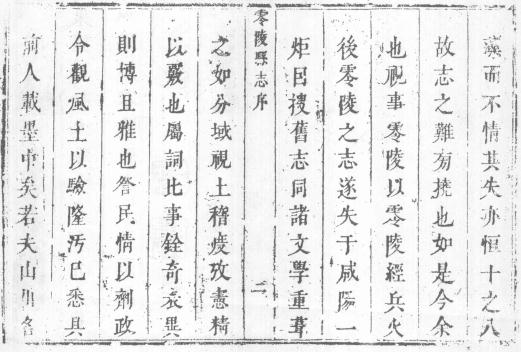 藻而不情其失亦恒十之八
故志之難有撓也如是今余
也視事零陵以零陵經兵火
後零陵之志遂失于咸陽一
炬因搜舊志同諸文學重葺
零陵縣志序 二
之如分域視土稽疫攷憲精
以覈也屬詞比事銓奇袤異
則博且雅也詧民情以劑政
令觀風土以驗隆汚已悉具
前人載墨中矣若夫山川